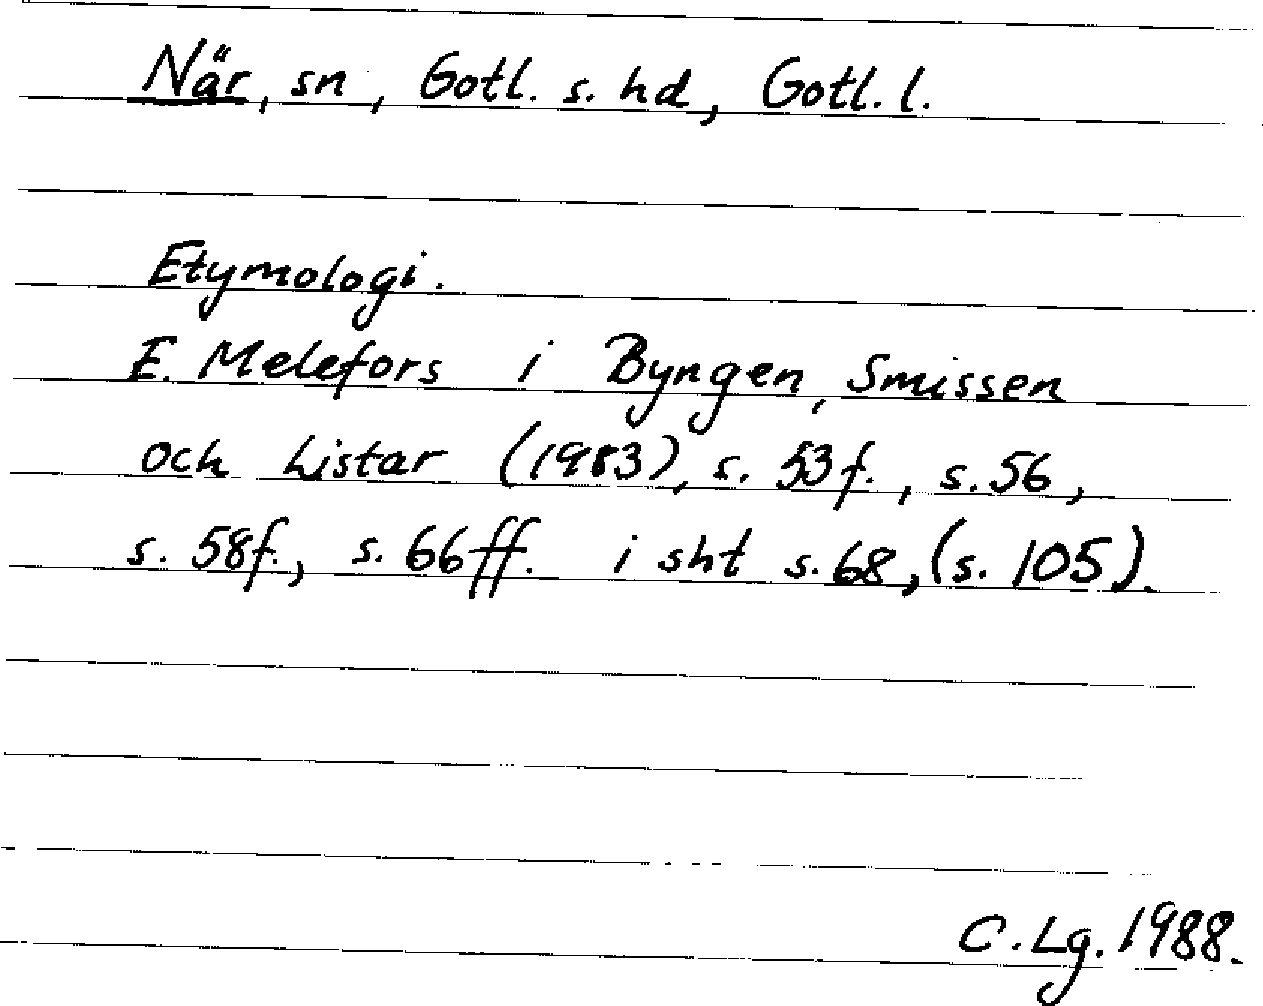 När, sn, Gotl. s. hd, Gotl. l.
Etymologi.
E. Melefors i Byngen, Smissen
och Listar (1983), s. 53f., s. 56,
s. 58f., s. 66ff. i sht s. 68, (s. 105).
C. Lg. 1988.